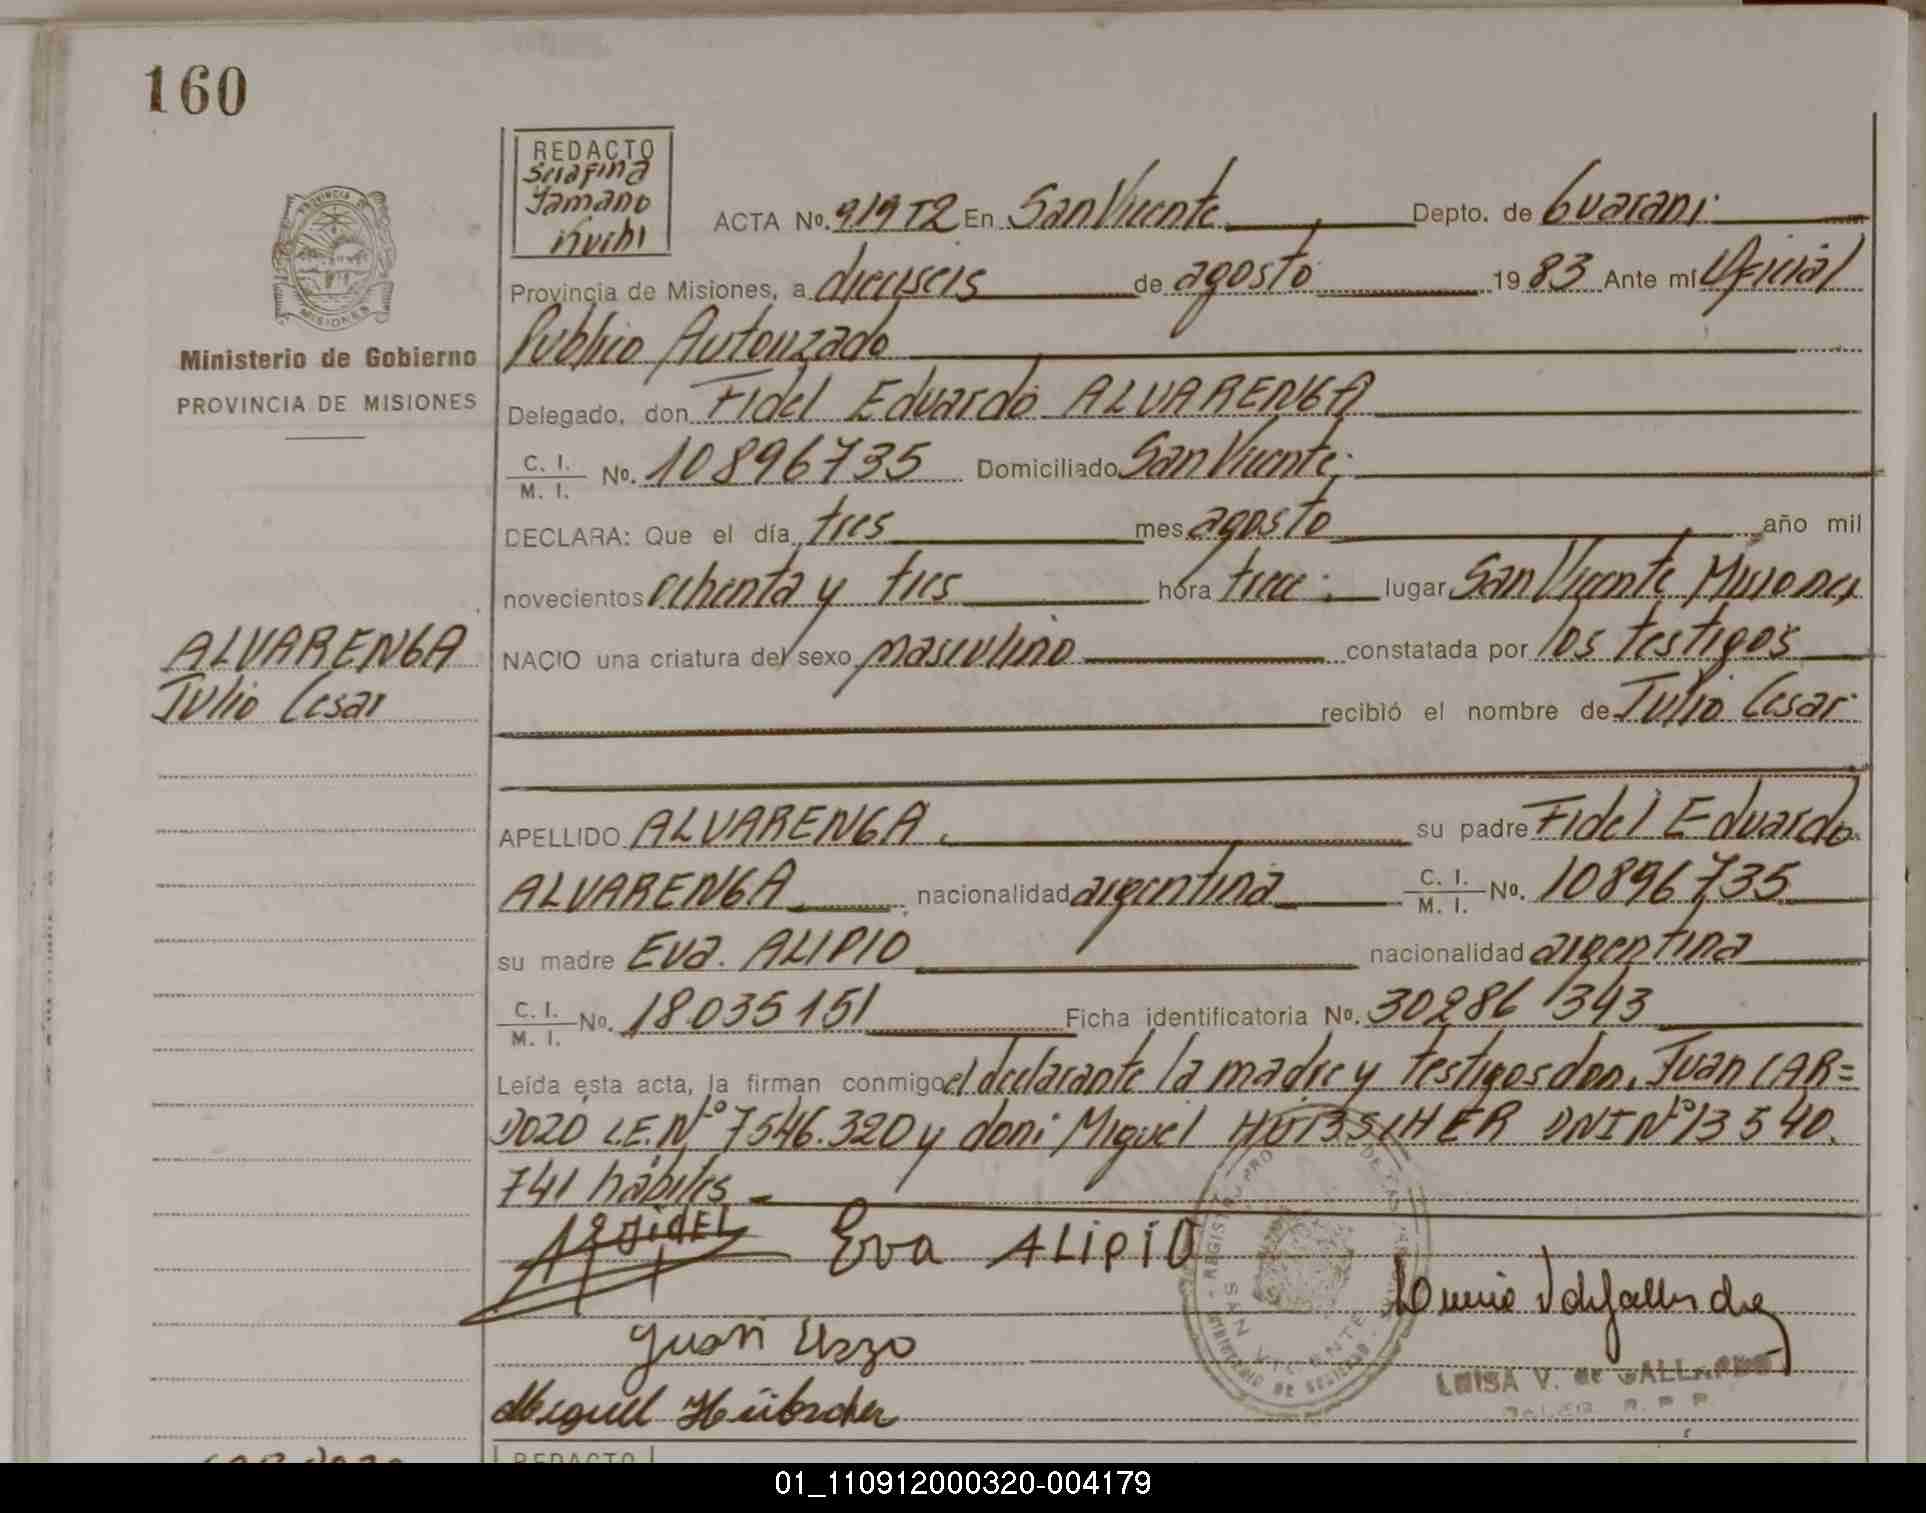 160
REDACTO
Serafina
Yamano
Kuchi
ACTA No. 919 T2 En San Vicente Depto. de Guarani
Provincia de Misiones, a dieciseis de agosto 1983 Ante mí Oficial
Publico Autorizado
Ministerio de Gobierno
PROVINCIA DE MISIONES
Delegado, don Fidel Eduardo ALVARENGA
C. I. / M. I. No. 10896735 Domiciliado San Vicente
DECLARA: Que el día tres mes agosto año mil
novecientos ochenta y tres hora trece lugar San Vicente Misiones
ALVARENGA
Julio Cesar
NACIO una criatura del sexo masculino constatada por los testigos
recibió el nombre de Julio Cesar
APELLIDO ALVARENGA su padre Fidel Eduardo
ALVARENGA nacionalidad argentina C. I. / M. I. No. 10896735
su madre Eva ALIPIO nacionalidad argentina
C. I. / M. I. No. 18.035 151 Ficha identificatoria No. 30286 343
Leída esta acta, la firman conmigo el declarante la madre y testigos don Juan CAR=
DOZO L.E. Nº 7546.320 y don Miguel HÜBSCHER DNI Nº 13 540.
741 hábiles
FIDEL
Eva ALIPIO
Juan
Miguel Hübscher
SAN VICENTE
LUISA V. de GALLARDO
REDACTO
01_110912000320-004179